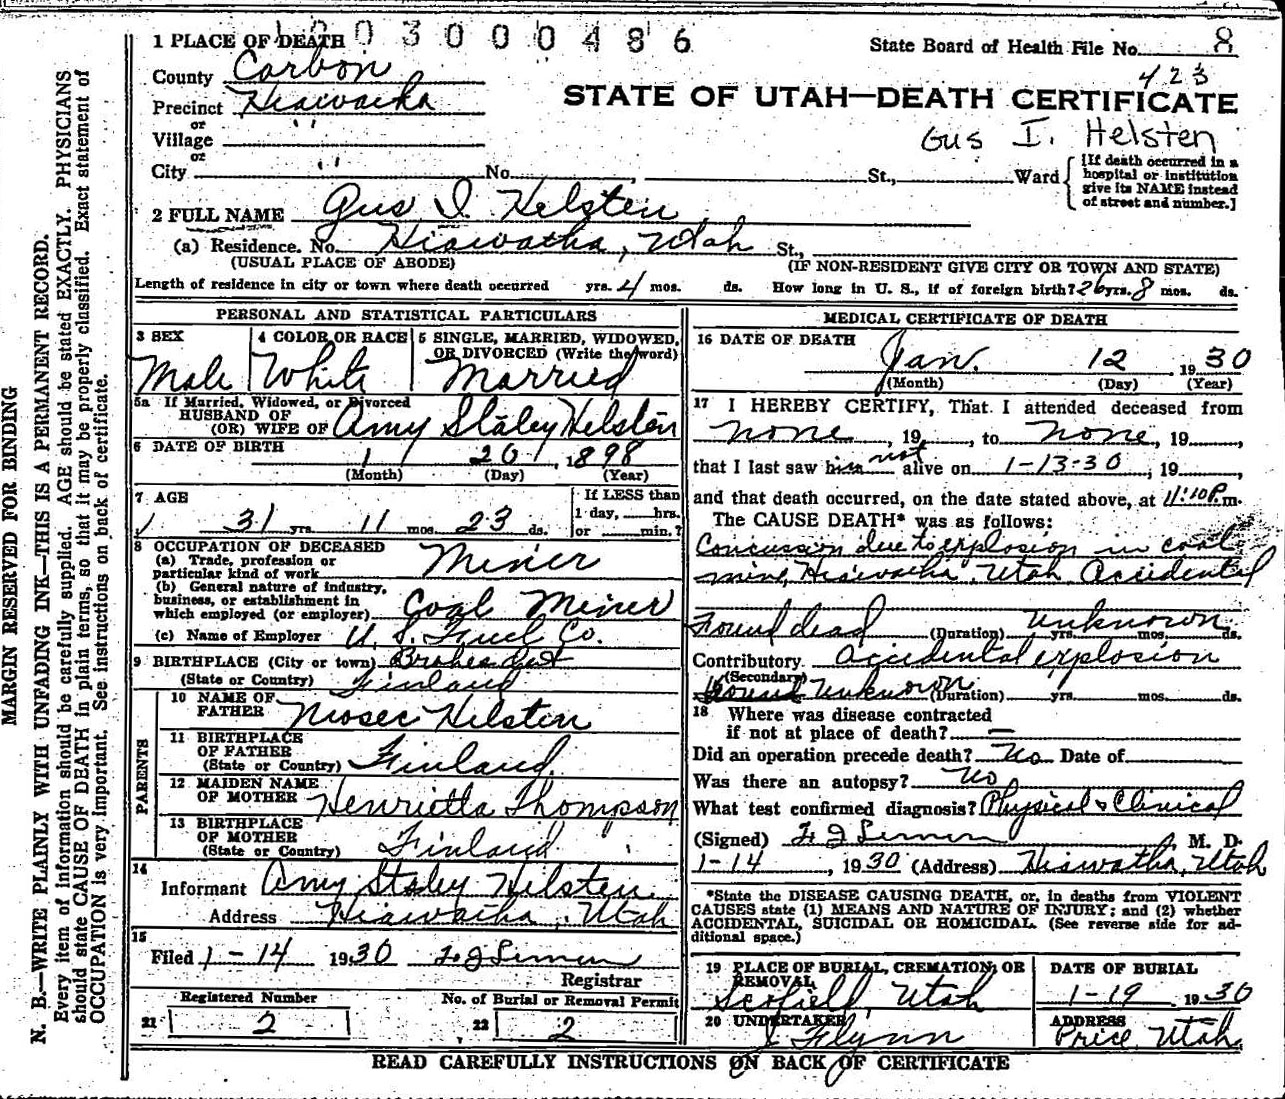 1 PLACE OF DEATH 1203000486
State Board of Health File No. 8
County Carbon
423
Precinct Hiawatha
STATE OF UTAH—DEATH CERTIFICATE
or
Village " "
Gus I. Helsten
or
City " " No. , St., Ward
[If death occurred in a
hospital or institution
give its NAME instead
of street and number.]
2 FULL NAME Gus I. Helsten
(a) Residence. No. Hiawatha, Utah St.,
(USUAL PLACE OF ABODE) (IF NON-RESIDENT GIVE CITY OR TOWN AND STATE)
Length of residence in city or town where death occurred yrs. 4 mos. ds. How long in U. S., if of foreign birth? 26 yrs. 8 mos. ds.
PERSONAL AND STATISTICAL PARTICULARS
3 SEX Male
4 COLOR OR RACE White
5 SINGLE, MARRIED, WIDOWED,
OR DIVORCED (Write the word)
Married
5a If Married, Widowed, or Divorced
HUSBAND OF
(OR) WIFE OF Amy Staley Helsten
6 DATE OF BIRTH
1 20 1898
(Month) (Day) (Year)
7 AGE
31 yrs. 11 mos. 23 ds.
If LESS than
1 day, hrs.
or min.?
8 OCCUPATION OF DECEASED
(a) Trade, profession or
particular kind of work Miner
(b) General nature of industry,
business, or establishment in
which employed (or employer) Coal Miner
(c) Name of Employer U. S. Fuel Co.
9 BIRTHPLACE (City or town)
(State or Country) Finland
PARENTS
10 NAME OF
FATHER Helsten
11 BIRTHPLACE
OF FATHER
(State or Country) Finland
12 MAIDEN NAME
OF MOTHER Henrietta Thompson
13 BIRTHPLACE
OF MOTHER
(State or Country) Finland
14
Informant Amy Staley Helsten
Address Hiawatha, Utah
15
Filed 1-14 1930
Registrar
Registered Number
21 2
No. of Burial or Removal Permit
22 2
MEDICAL CERTIFICATE OF DEATH
16 DATE OF DEATH
Jan. 12 1930
(Month) (Day) (Year)
17 I HEREBY CERTIFY, That I attended deceased from
none, 19 , to none, 19 ,
that I last saw him not alive on 1-13-30, 19 ,
and that death occurred, on the date stated above, at 11:10 P.m.
The CAUSE DEATH* was as follows:
Concussion due to explosion in coal
mine, Hiawatha, Utah Accidental
Found dead (Duration) Unknown yrs. mos. ds.
Contributory Accidental explosion
(Secondary)
Unknown (Duration) yrs. mos. ds.
18 Where was disease contracted
if not at place of death? —
Did an operation precede death? No Date of
Was there an autopsy? No
What test confirmed diagnosis? Physical & Clinical
(Signed) M. D.
1-14, 1930 (Address) Hiawatha, Utah
*State the DISEASE CAUSING DEATH, or, in deaths from VIOLENT
CAUSES state (1) MEANS AND NATURE OF INJURY; and (2) whether
ACCIDENTAL, SUICIDAL OR HOMICIDAL. (See reverse side for ad-
ditional space.)
19 PLACE OF BURIAL, CREMATION, OR
REMOVAL
Scofield, Utah
DATE OF BURIAL
1-19 1930
20 UNDERTAKER
J Flynn
ADDRESS
Price, Utah
READ CAREFULLY INSTRUCTIONS ON BACK OF CERTIFICATE
MARGIN RESERVED FOR BINDING
N. B.—WRITE PLAINLY WITH UNFADING INK—THIS IS A PERMANENT RECORD.
Every item of information should be carefully supplied. AGE should be stated EXACTLY. PHYSICIANS
should state CAUSE OF DEATH in plain terms, so that it may be properly classified. Exact statement of
OCCUPATION is very important. See instructions on back of certificate.